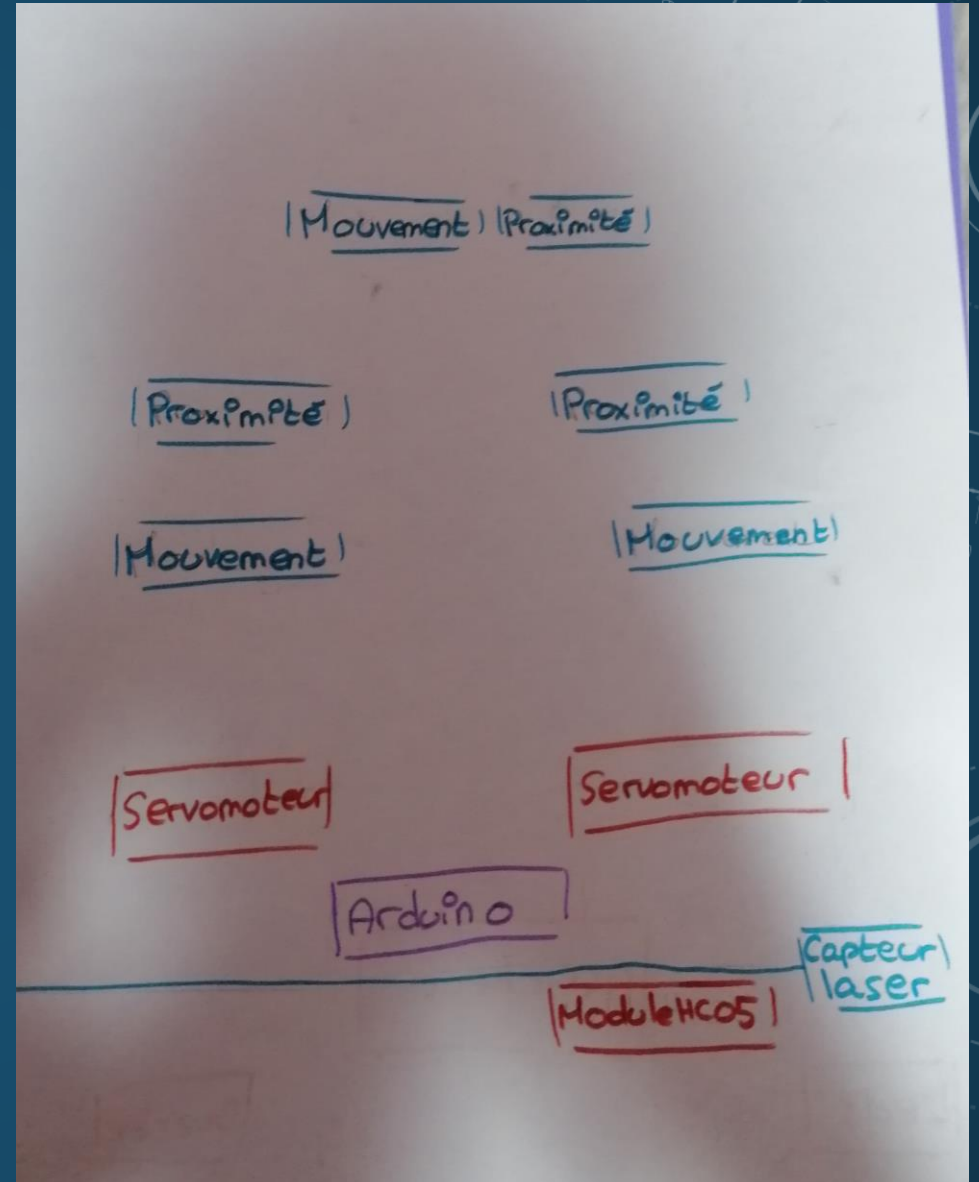 Mouvement Proximité
Proximité Proximité
Mouvement Mouvement
Servomoteur Servomoteur
Arduino
Capteur
laser
Module HC05